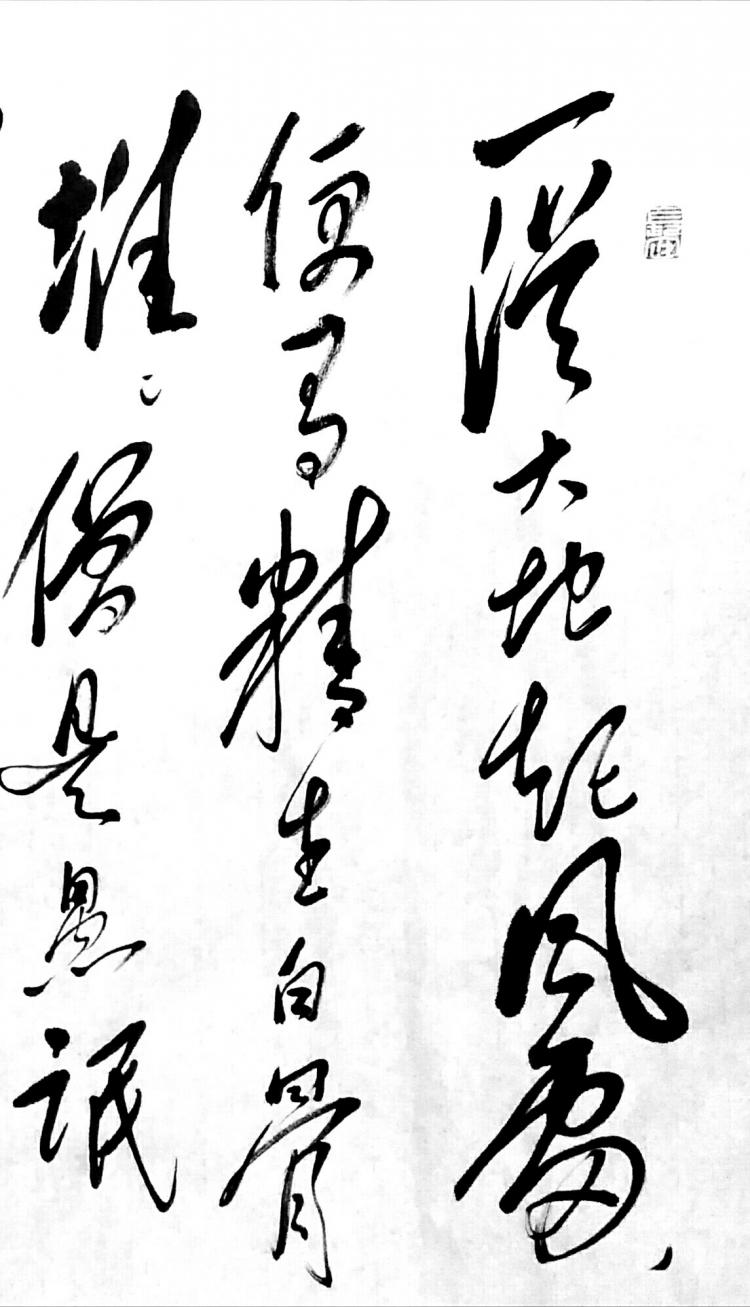 一從大地起風雷
便有精生白骨
堆。僧是愚氓